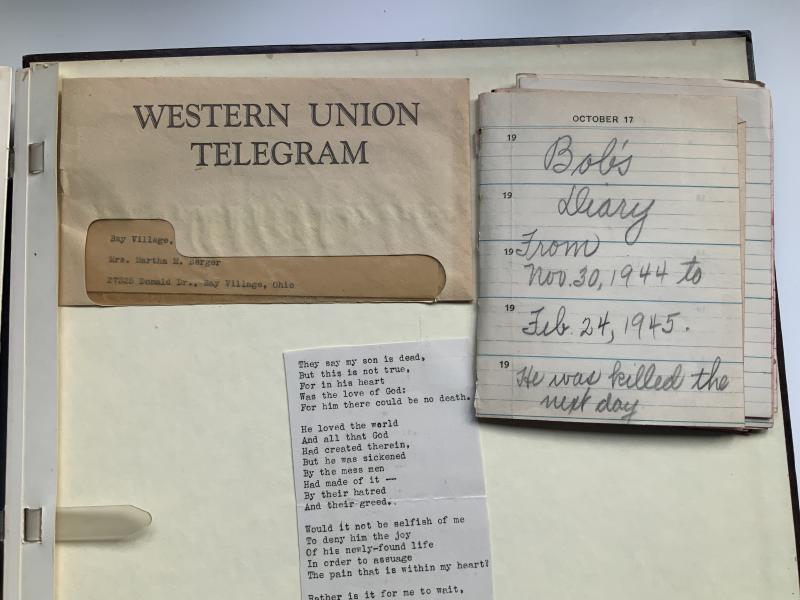 WESTERN UNION
TELEGRAM
Bay Village,
Mrs. Martha M. Berger
27325 Donald Dr., Bay Village, Ohio
OCTOBER 17
19
Bob's
19
Diary
19
From
Nov. 30, 1944 to
19
Feb. 24, 1945.
19
He was killed the
next day
They say my son is dead,
But this is not true,
For in his heart
Was the love of God:
For him there could be no death.
He loved the world
And all that God
Had created therein,
But he was sickened
By the mess men
Had made of it --
By their hatred
And their greed.
Would it not be selfish of me
To deny him the joy
Of his newly-found life
In order to assuage
The pain that is within my heart?
Rather is it for me to wait,